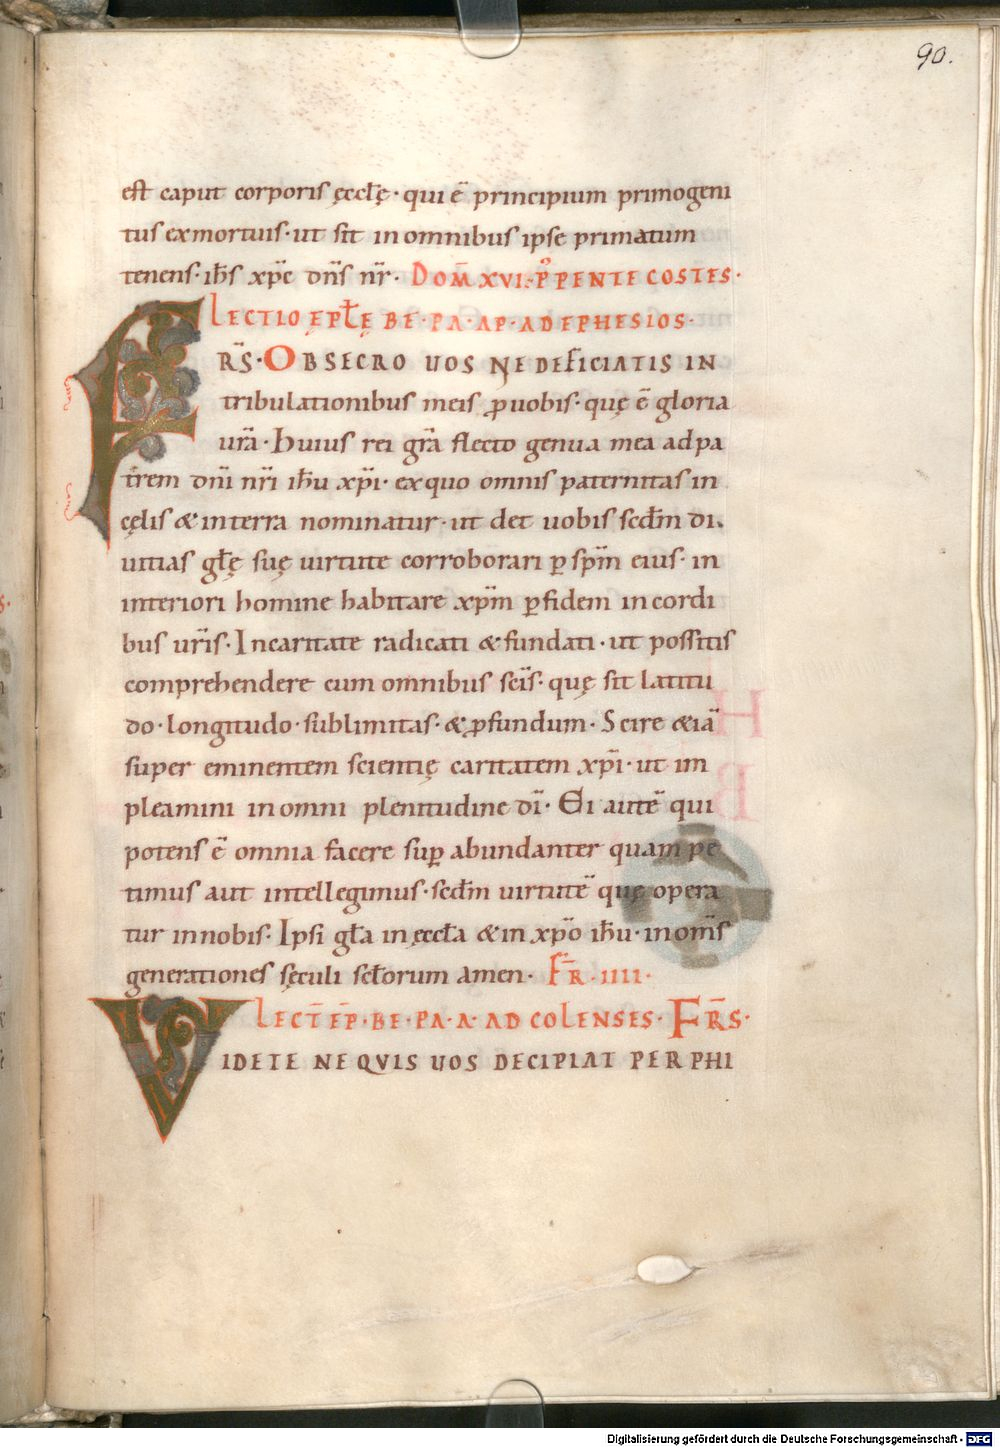 90.
est caput corporis ęccłę · qui ē principium primogeni
tus exmortuis · ut sit in omnibus ipse primatum
tenens · ihs̄ xp̄c dn̄s nr̄ · DOM̄ XVI · P̊ PENTECOSTES ·
LECTIO ĘPŁĘ BE · PA · AP · AD EPHESIOS ·
FRS̄ · OBSECRO UOS NE DEFICIATIS IN
tribulationibus meis ꝓ uobis · quę ē gloria
ur̄a · huius rei gr̄a flecto genua mea ad pa
trem dn̄i nr̄i ih̄u xp̄i · ex quo omnis paternitas in
cęlis & in terra nominatur · ut det uobis scđm di
uitias głę suę uirtute corroborari ꝑ sp̄m eius · in
interiori homine habitare xp̄m ꝑ fidem in cordi
bus ur̄is · In caritate radicati & fundati · ut possitis
comprehendere cum omnibus sc̄is · quę sit latitu
do · longitudo · sublimitas · & ꝓfundum · Scire &iā
super eminentem scientię caritatem xp̄i · ut im
pleamini in omni plenitudine dī · Ei autē qui
potens ē omnia facere suꝑ abundanter quam pe
timus aut intellegimus · scđm uirtutē quę opera
tur in nobis · Ipsi gła in ęccła & in xp̄o ih̄u · in om̄s
generationes sęculi scłorum amen · FR̄ · IIII ·
LECT̄ EP̄ · BE · PA · A · AD COLENSES · FRS̄ ·
VIDETE NE QVIS UOS DECIPIAT PER PHI
Digitalisierung gefördert durch die Deutsche Forschungsgemeinschaft - DFG